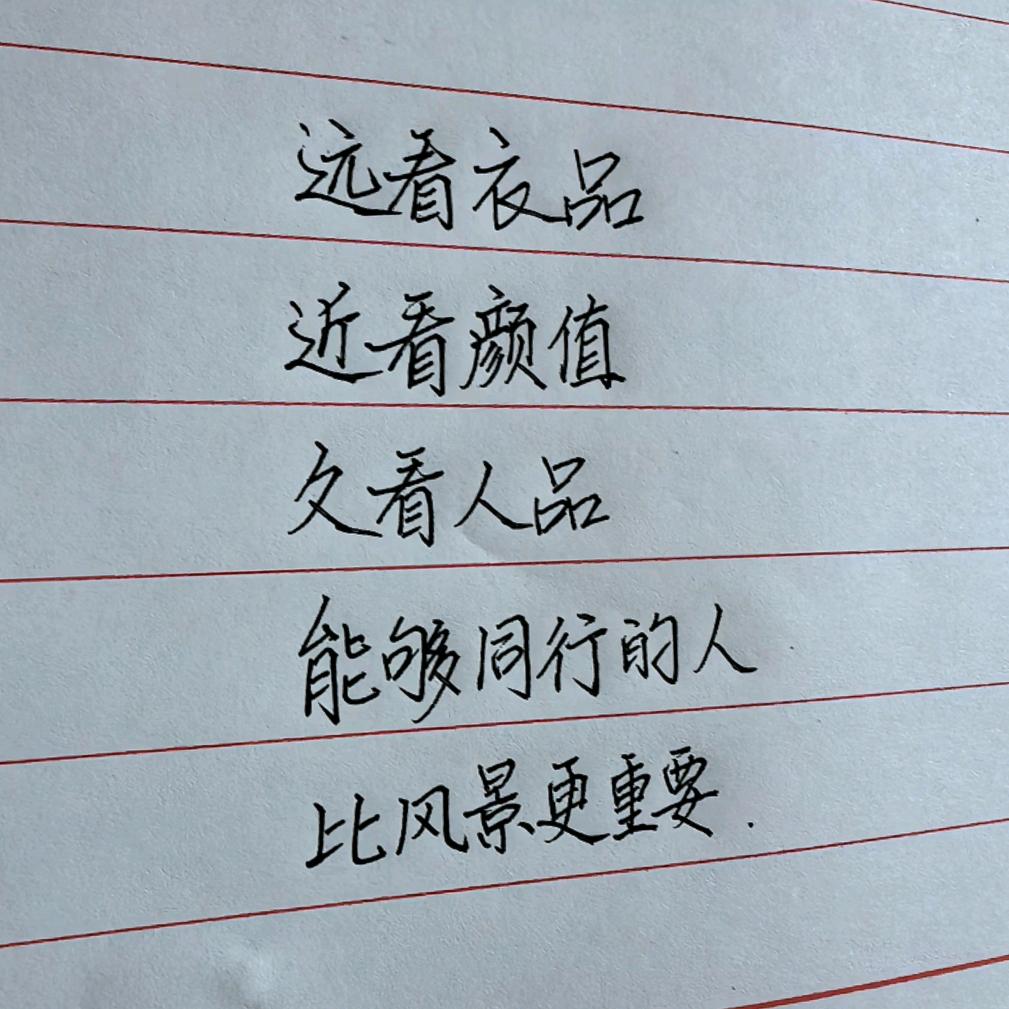 远看衣品
近看颜值
久看人品
能够同行的人
比风景更重要.